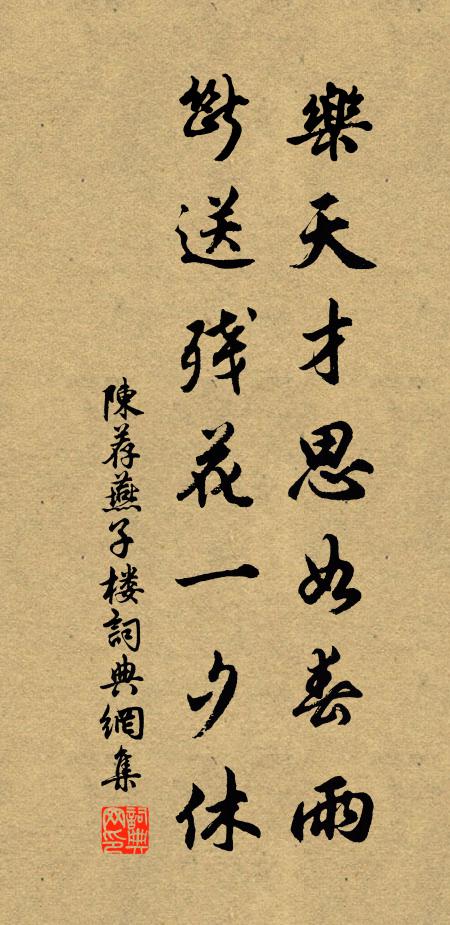 樂天才思如春雨
斷送殘花一夕休
陳荐燕子楼詞典網集
詞典網印